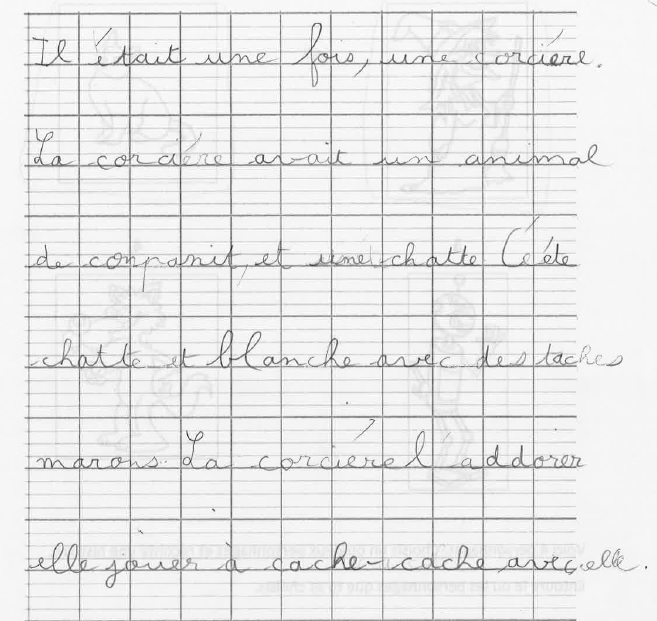 Il était une fois, une corcière.
La corcière avait un animal
de conpanit, et une chatte Cé éte
chatte et blanche avec des taches
marons. La corciére l'addorer
elle jouer à cache-cache avec elle.